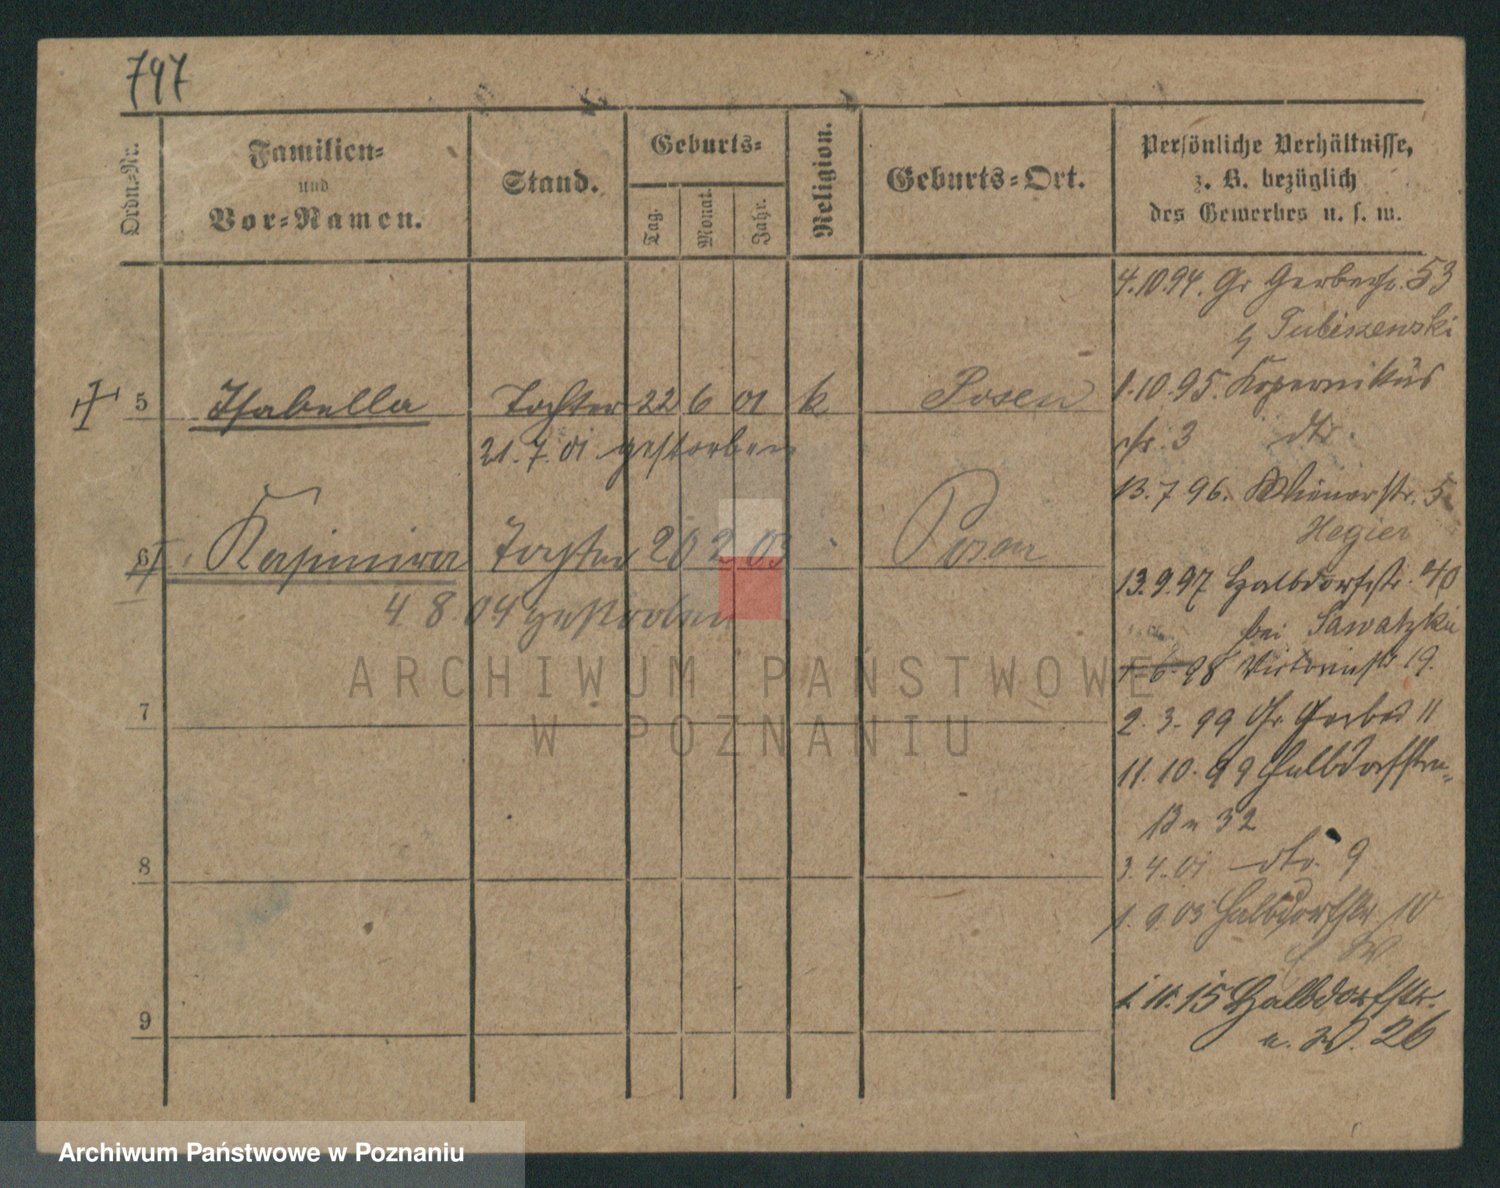 797
Ordn.-Nr.
Familien-
und
Vor-Namen.
Stand.
Geburts-
Tag.
Monat.
Jahr.
Religion.
Geburts-Ort.
Persönliche Verhältnisse,
z. B. bezüglich
des Gewerbes u. s. w.
5 Isabella Tochter 22 6 01 k Posen
21.7.01 gestorben
6 Kasimira Tochter 20 2 03 Posen
4 8.04 gestorben
7
8
9
4.10.94. Gr Gerberstr. 53
1.10.95. Kopernikus
str. 3 dto.
13.7 96. Wienerstr. 5
Hegier
13.9.97 Halbdorfstr. 40
bei Sawatzki
1.6.98 Victoriastr 19.
2.3.99 Gr Gerber 11
11.10.99 Halbdorfstr.
32
3.4.01 dto. 9
1.9.03 Halbdorfstr 10
1.10.15 Halbdorfstr.
26
ARCHIWUM PAŃSTWOWE
W POZNANIU
Archiwum Państwowe w Poznaniu